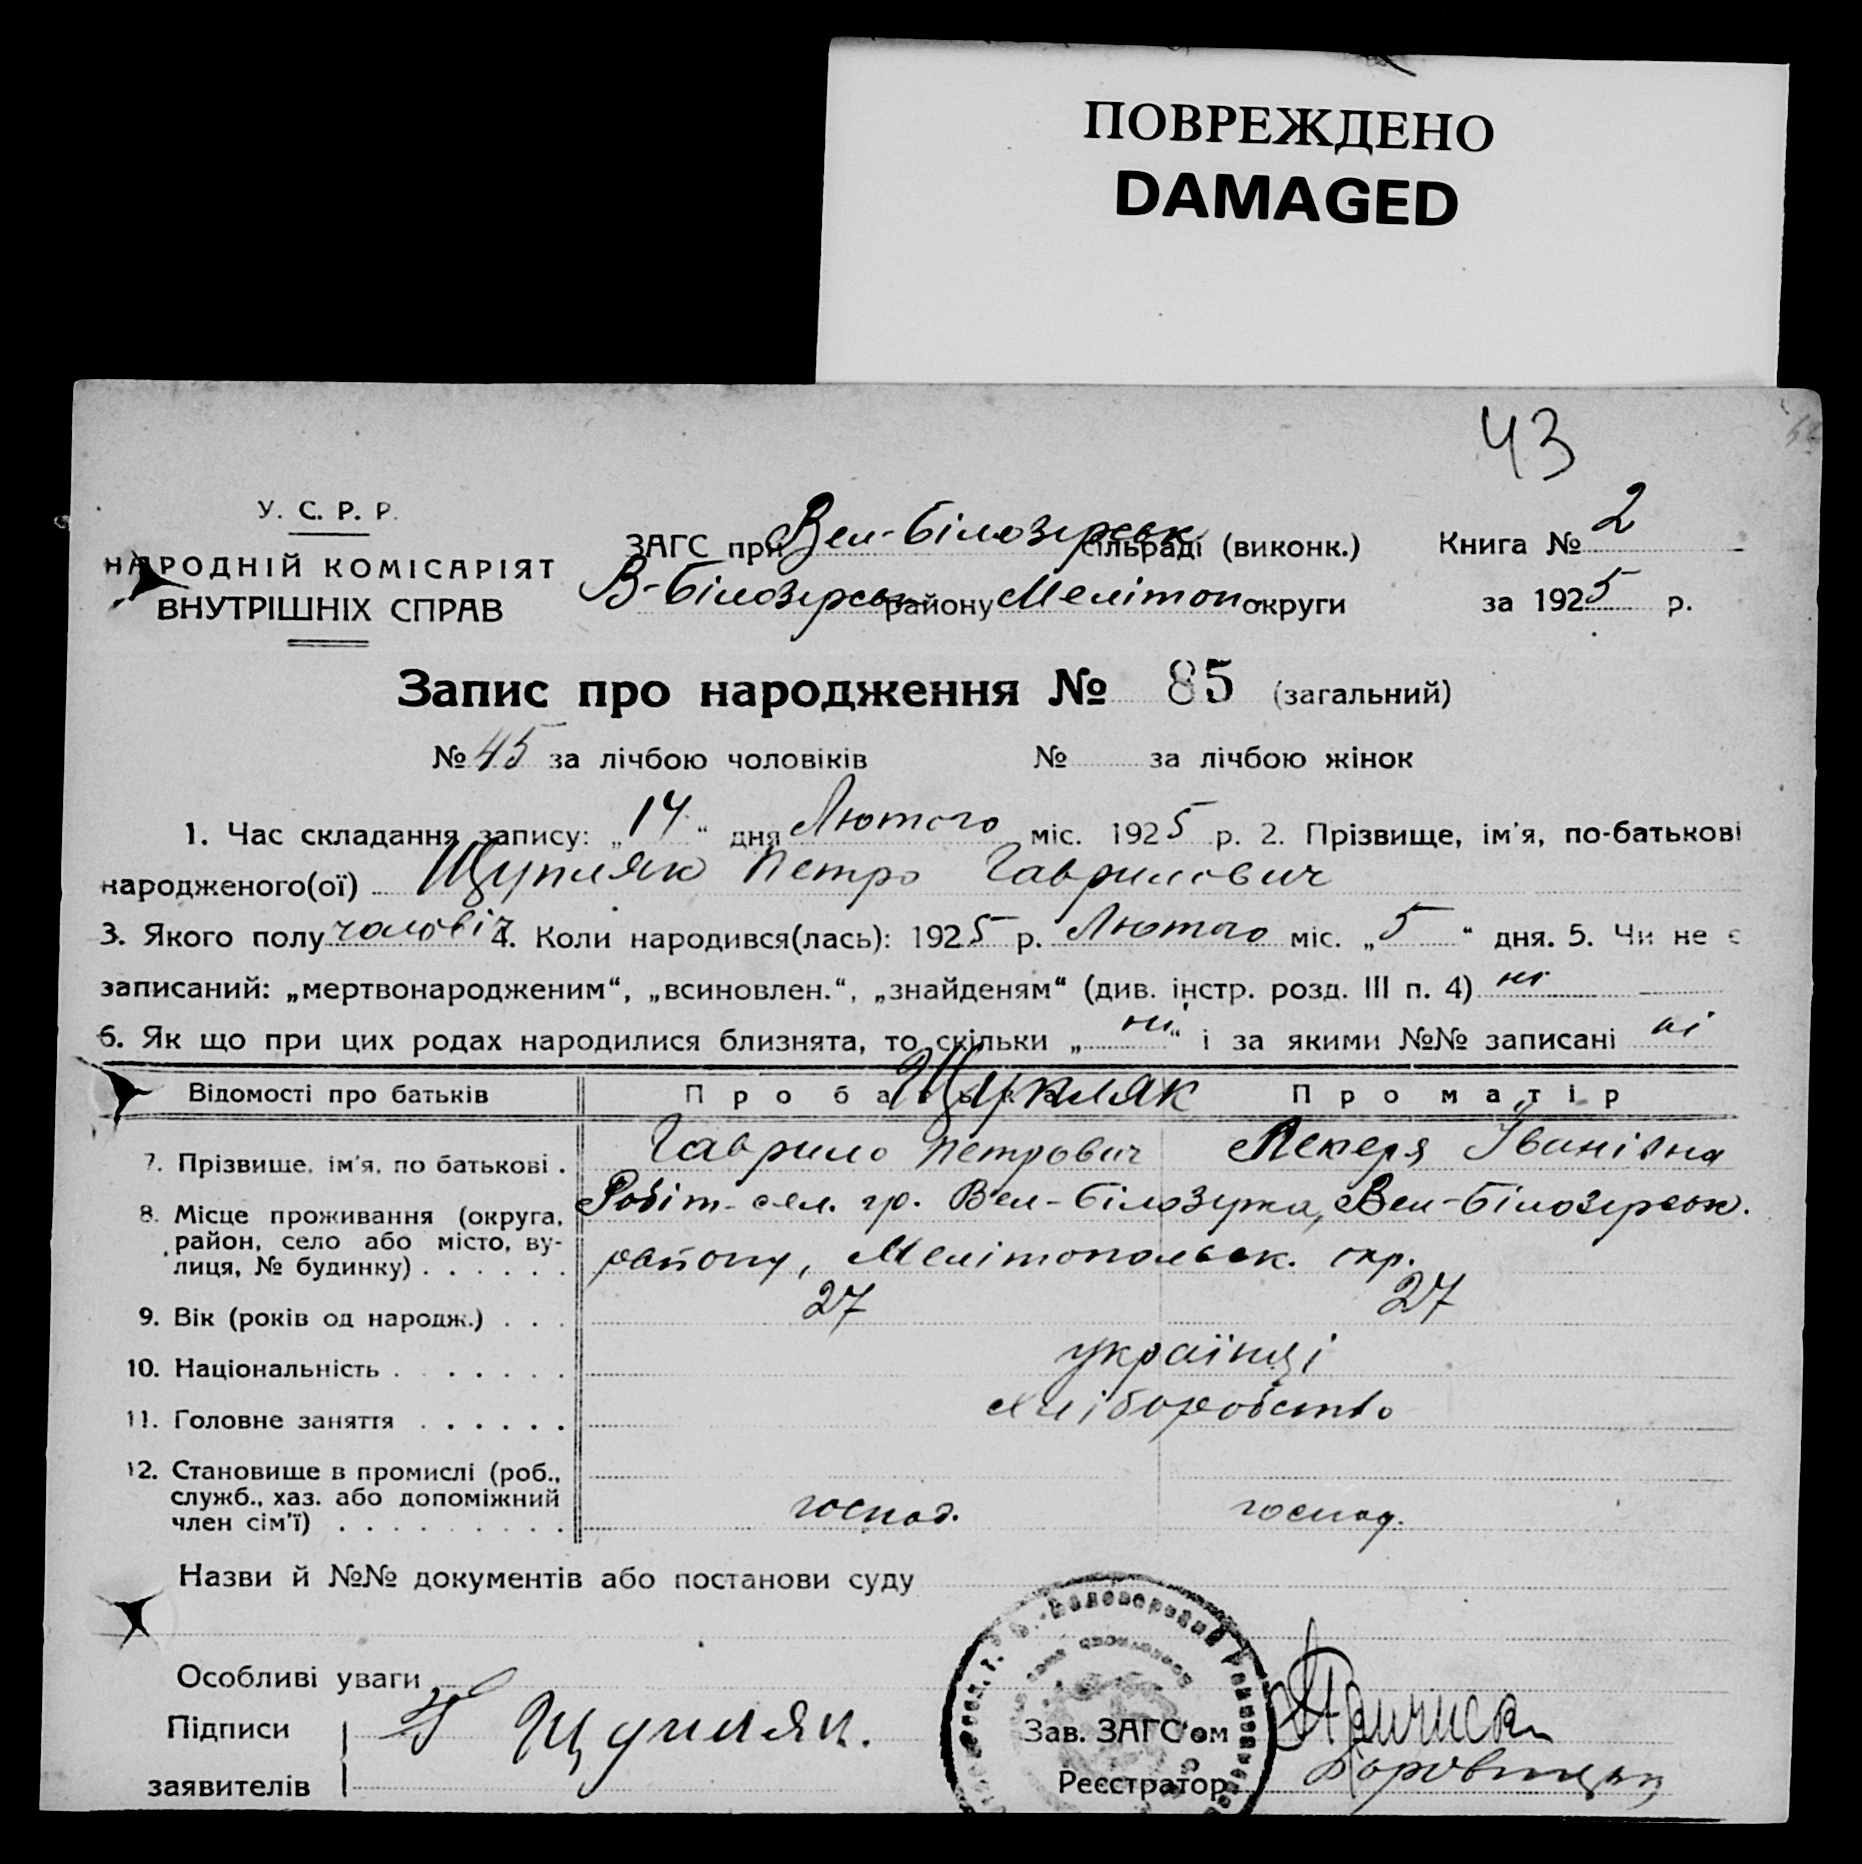 ПОВРЕЖДЕНО
DAMAGED
43
У. С. Р. Р.
НАРОДНІЙ КОМІСАРІЯТ
ВНУТРІШНІХ СПРАВ
ЗАГС при Вел-Білозерськ сільраді (виконк.)
В-Білозерськ району Мелітоп. округи
Книга № 2
за 1925 р.
Запис про народження № 85 (загальний)
№ 45 за лічбою чоловіків № за лічбою жінок
1. Час складання запису: „14“ дня Лютого міс. 1925 р. 2. Прізвище, ім'я, по-батькові
народженого(ої) Щупляк Петро Гаврилович
3. Якого полу чоловіч 4. Коли народився(лась): 1925 р. Лютого міс. „5“ дня. 5. Чи не є
записаний: „мертвонародженим“, „всиновлен.“, „знайденям“ (див. інстр. розд. III п. 4) ні
6. Як що при цих родах народилися близнята, то скільки „ні“ і за якими №№ записані ні
Відомості про батьків Про батька Щупляк Про матір
7. Прізвище, ім'я, по батькові . Гаврило Петрович Лекеря Іванівна
8. Місце проживання (округа, район, село або місто, ву-лиця, № будинку) . . . . . . Робіт-сел. гр. Вел-Білозерка, Вел-Білозерськ.
району, Мелітопольськ. окр.
9. Вік (років од народж.) . . . 27 27
10. Національність . . . . . . . українці
11. Головне заняття . . . . . . хліборобство
12. Становище в промислі (роб.,
служб., хаз. або допоміжний
член сім'ї) . . . . . . . . . господ. господ.
Назви й №№ документів або постанови суду
Особливі уваги
Підписи
заявителів
Щупляк.
Зав. ЗАГС'ом
Реєстратор